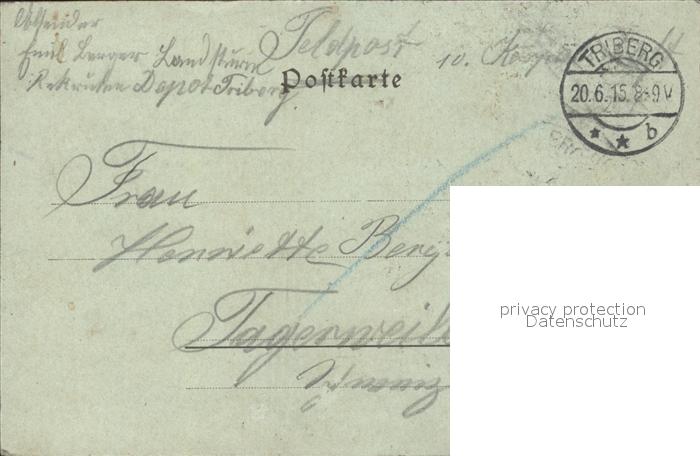 Absender
Emil Berger Landsturm
Rekruten Depot Triberg
Feldpost
10.
Postkarte
TRIBERG
20.6.15.8-9V
* * b
Frau
Henriette
Tägerweil
privacy protection
Datenschutz